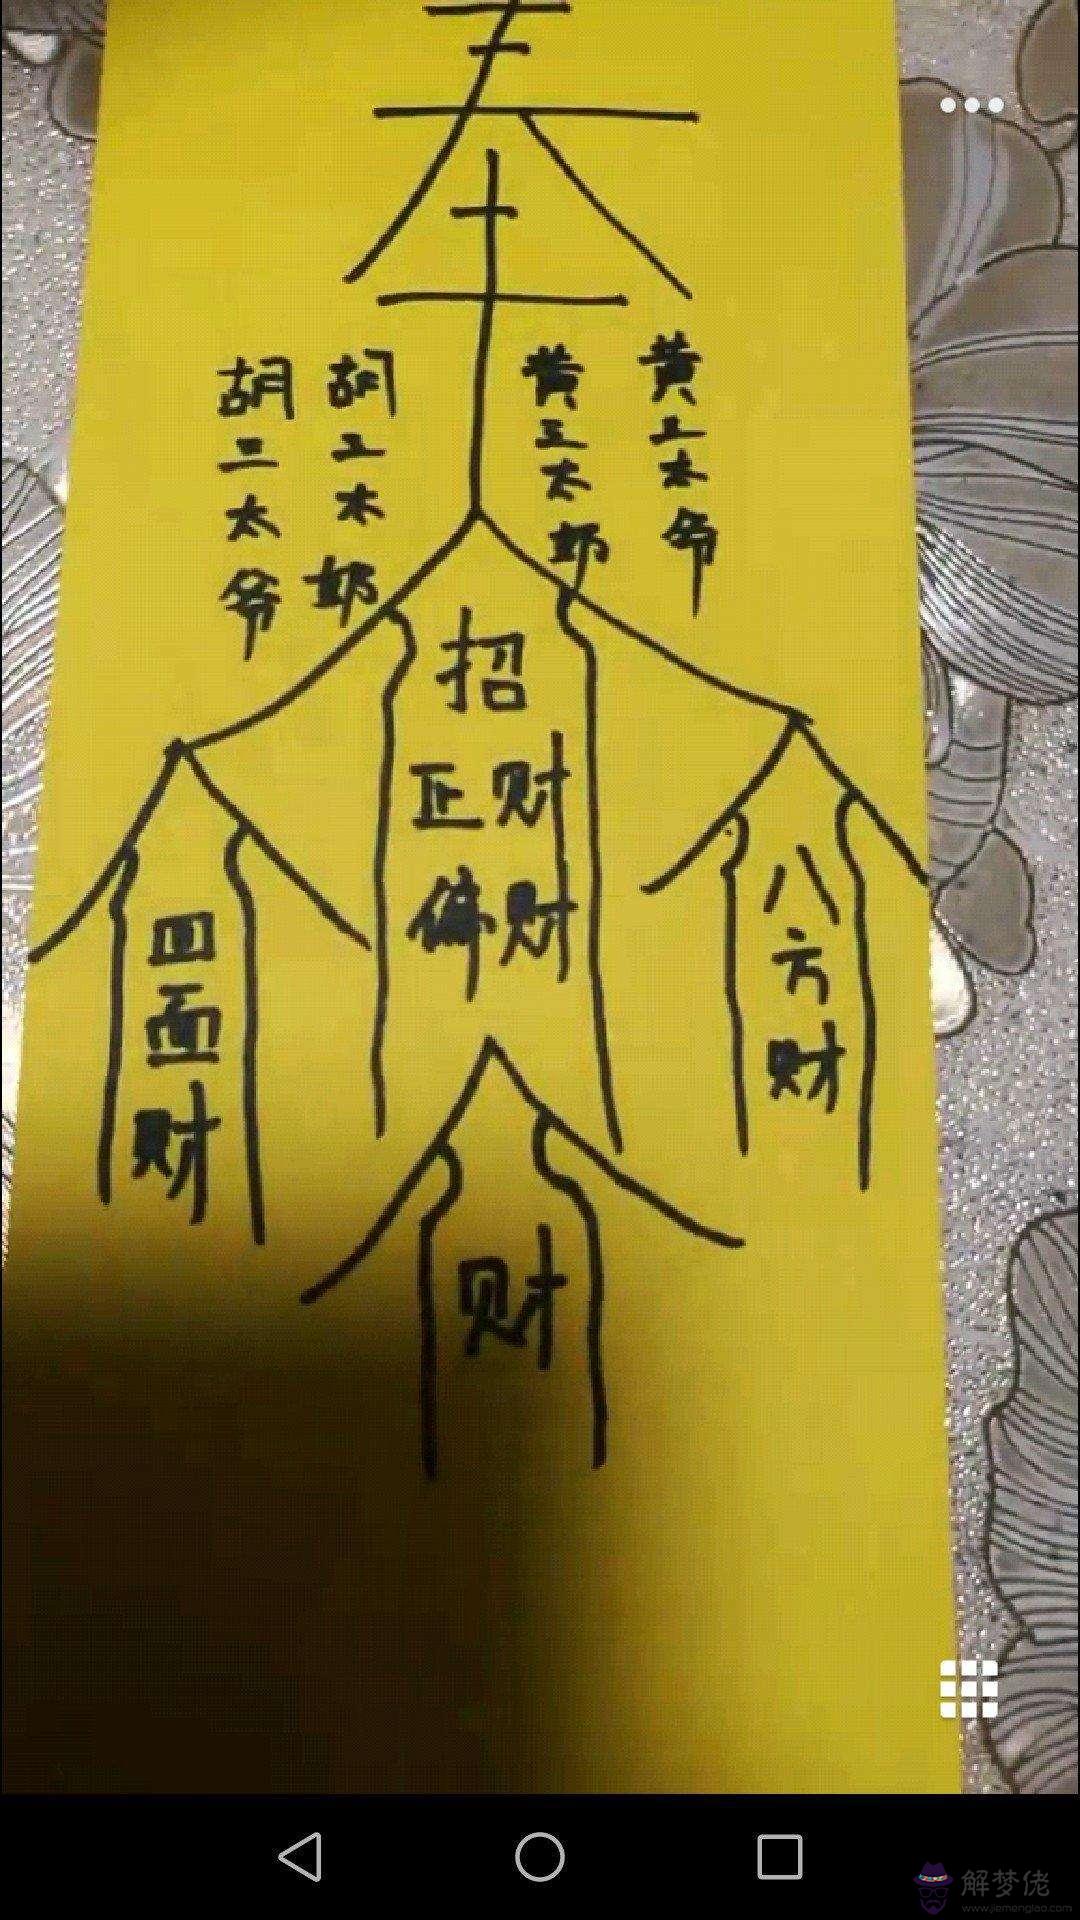 奉
胡二太爷
胡 太奶
黄三太奶
黄 太爷
招
正财
偏财
四面财
八方财
财
解梦佬
www.jiemenglao.com